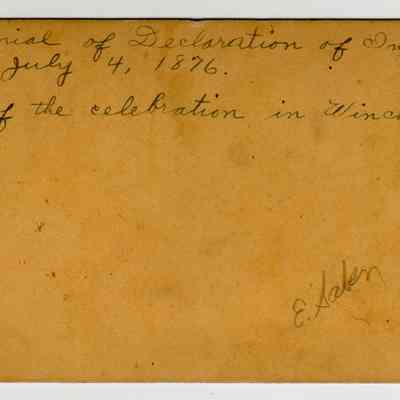 nial of Declaration of In
July 4, 1876.
f the celebration in Winc
E. Saben